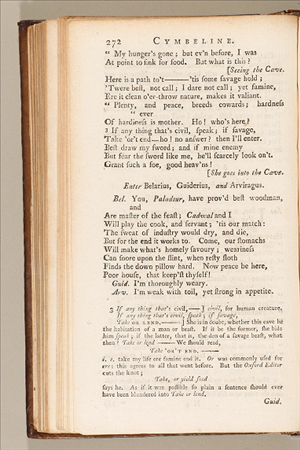 272 CYMBELINE.
" My hunger's gone; but ev'n before, I was
At point to sink for food. But what is this?
[Seeing the Cave.
Here is a path to't——'tis some savage hold;
'Twere best, not call; I dare not call; yet famine,
Ere it clean o'er-throw nature, makes it valiant.
" Plenty, and peace, breeds cowards; hardness
" ever
Of hardiness is mother. Ho! who's here?
3 If any thing that's civil, speak; if savage,
Take 'or't end—ho! no answer? then I'll enter.
Best draw my sword; and if mine enemy
But fear the sword like me, he'll scarcely look on't.
Grant such a foe, good heav'ns!
[She goes into the Cave.
Enter Belarius, Guiderius, and Arviragus.
Bel. You, Paladour, have prov'd best woodman,
and
Are master of the feast; Cadwal and I
Will play the cook, and servant; 'tis our match:
The sweat of industry would dry, and die,
But for the end it works to. Come, our stomachs
Will make what's homely savoury; weariness
Can snore upon the flint, when resty sloth
Finds the down pillow hard. Now peace be here,
Poor house, that keep'st thyself!
Guid. I'm thoroughly weary.
Arv. I'm weak with toil, yet strong in appetite.
3 If any thing that's civil,—] civil, for human creature,
If any thing that's civil, speak; if savage,
Take or lend.——] She is in doubt, whether this cave be
the habitation of a man or beast. If it be the former, she bids
him speak; if the latter, that is, the den of a savage beast, what
then? Take or lend—— We should read,
Take 'or't end.——
i. e. take my life ere famine end it. Or was commonly used for
ere: this agrees to all that went before. But the Oxford Editor
cuts the knot;
Take, or yield food
says he. As if it was possible so plain a sentence should ever
have been blundered into Take or lend.
Guid.